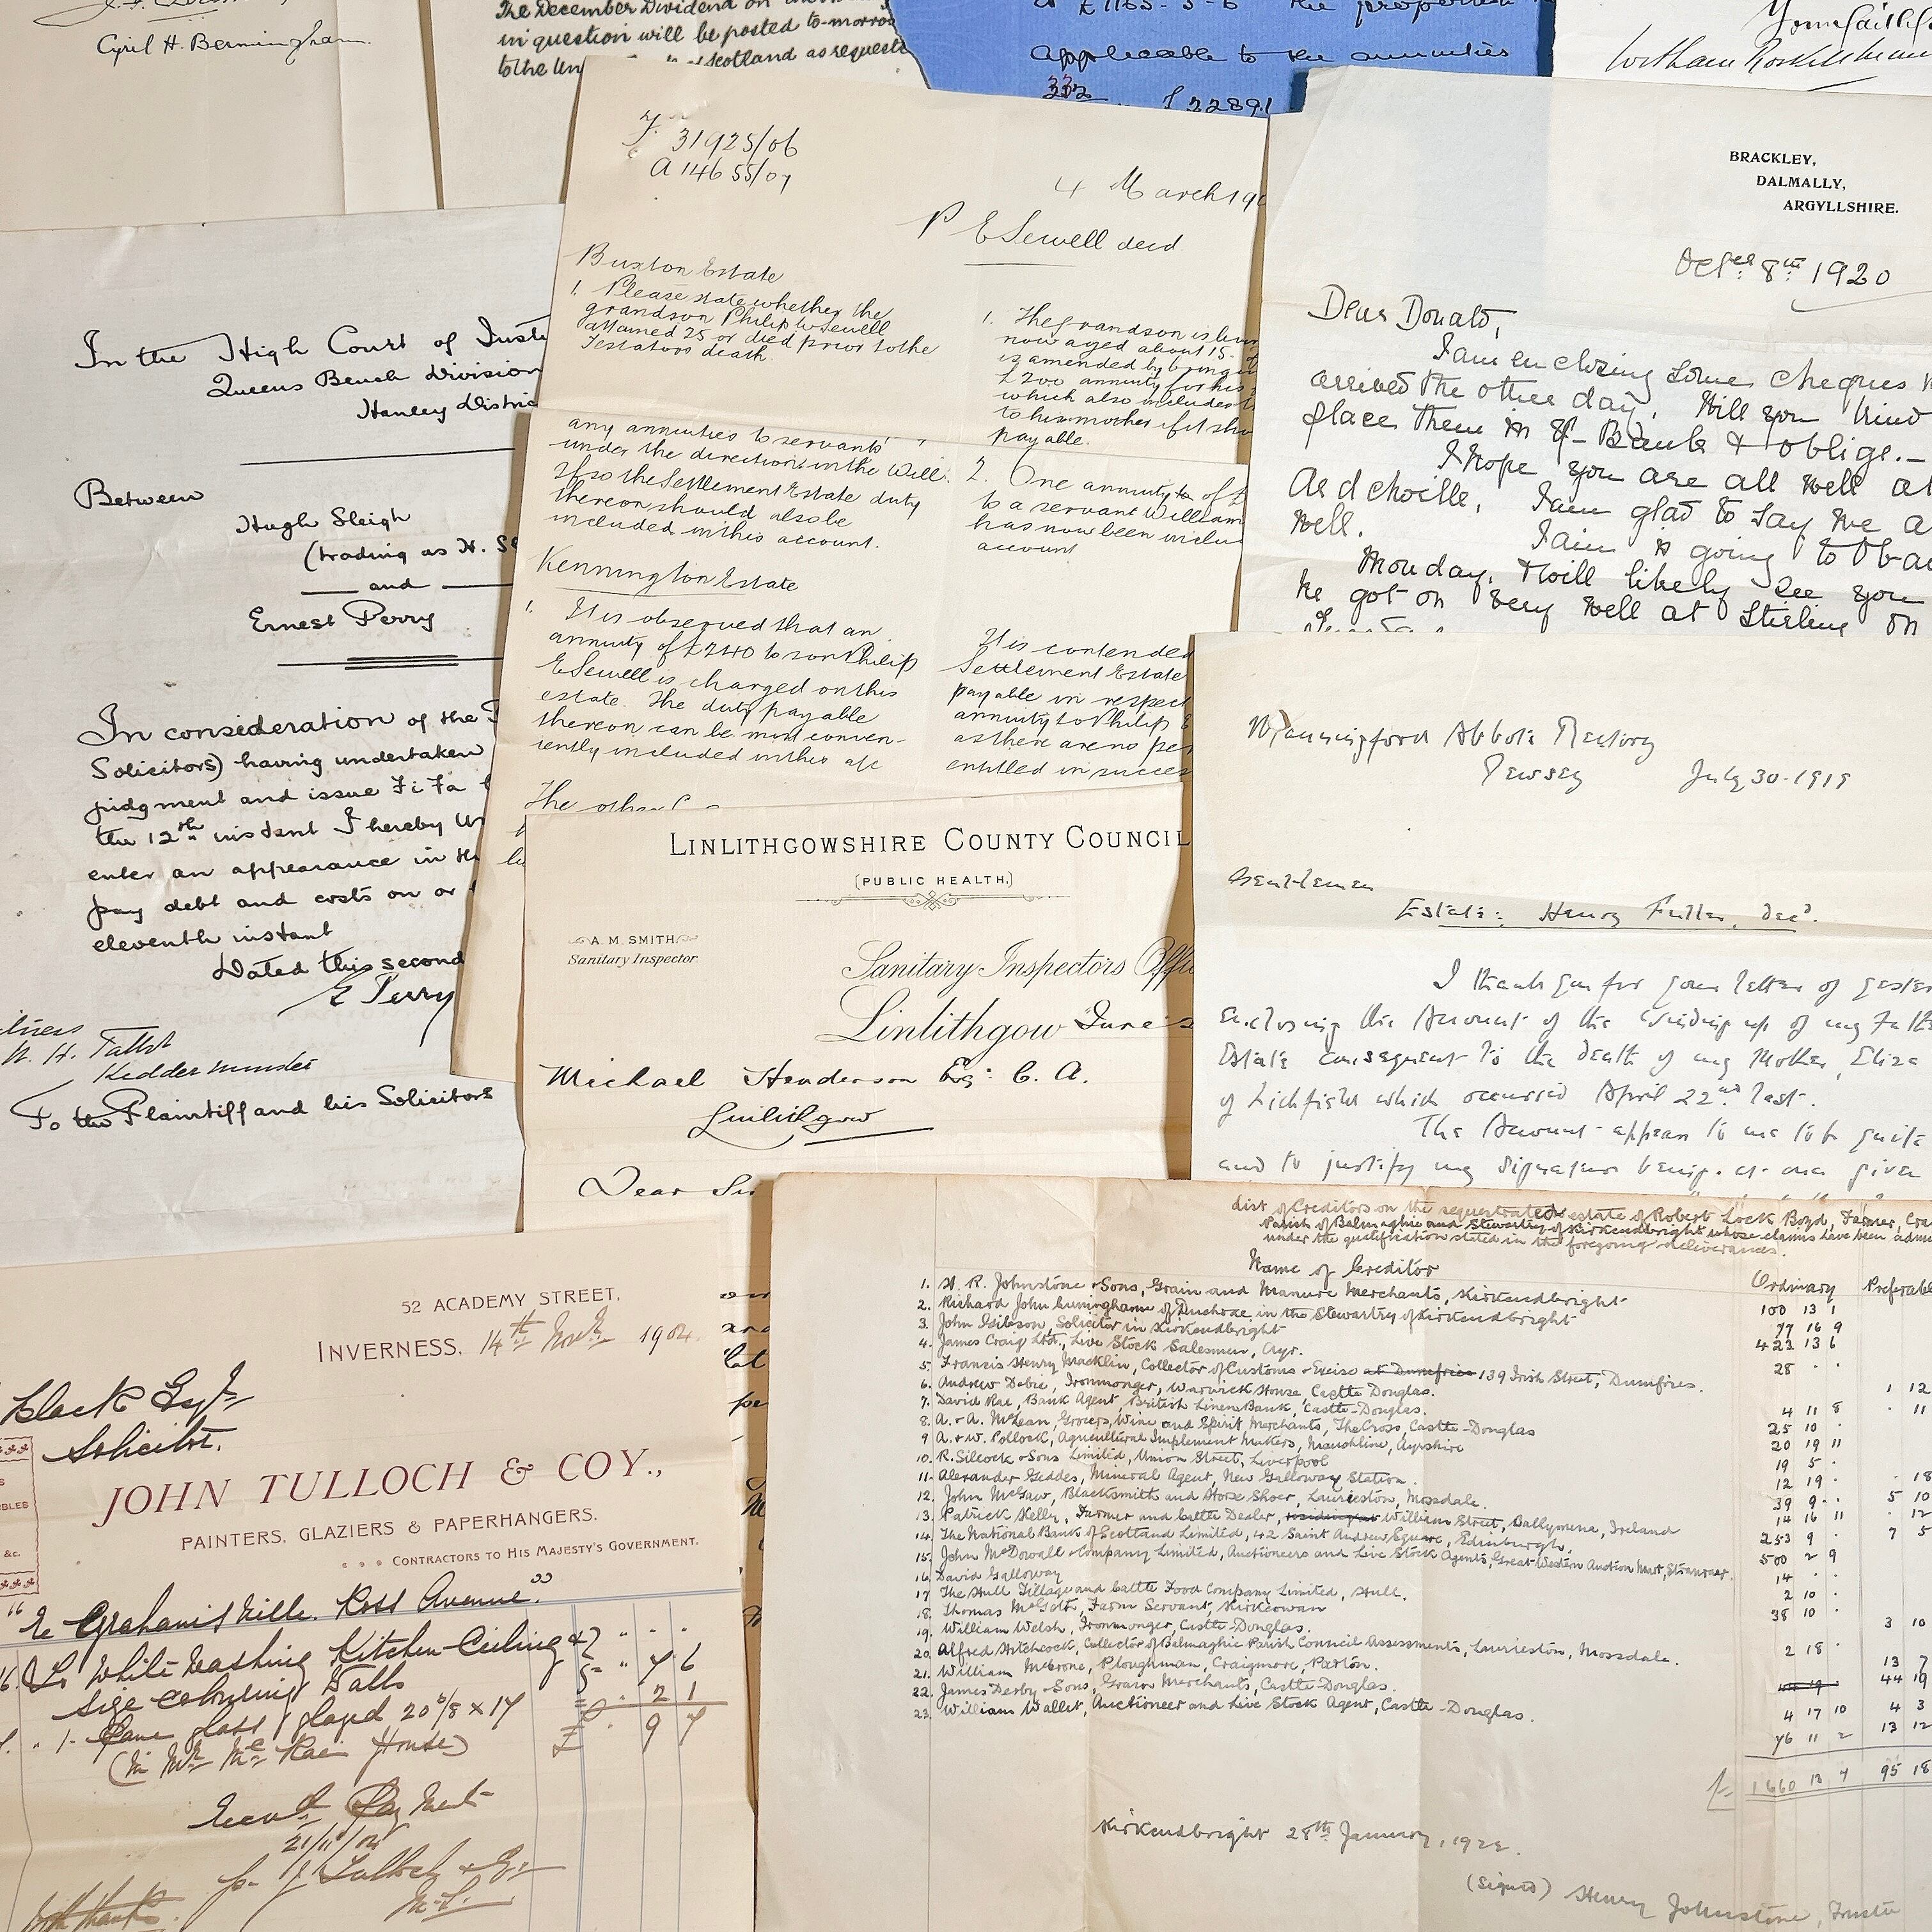 Cyril H. Bermingham
The December Dividend on
in question will be posted to-morrow
to the Un Scotland as requeste
£1165-5-6 the proportion
applicable to the annuities
£2289.1
31925/06
A 14655/07
4 March 190
P E Sewell decd
Buxton Estate
1. Please state whether the
grandson Philip W Sewell
attained 25 or died prior to the
Testators death.
1. The grandson is livin
now aged about 15.
is amended by bringin
£200 annuity for his
which also includes
to his mother if it sho
payable.
any annuities to servants
under the direction in the Will.
If so the Settlement Estate duty
thereon should also be
included in this account.
2. One annuity to of £
to a servant William
has now been inclu
account
Kennington Estate
1. It is observed that an
annuity of £240 to son Philip
E Sewell is charged on this
estate. The duty payable
thereon can be most conven-
iently included in this a/c
It is contended
Settlement Estate
payable in respect
annuity to Philip E
as there are no per
entitled in succes
The other
BRACKLEY,
DALMALLY,
ARGYLLSHIRE.
8th 1920
Dear Donald,
I am enclosing some cheques
arrived the other day. Will you kind
place them in Bank & oblige.-
I hope you are all well at
Ardchoille. I am glad to say we a
well.
Iain is going to Oba
Monday. & will likely see you
he got on very well at Stirling on
In the High Court of Justi
Queens Bench Division
Hanley Distric
Between
Hugh Sleigh
(trading as H. S
and
Ernest Perry
In consideration of the
Solicitors) having undertaken
judgment and issue Fi Fa
the 12th instant I hereby un
enter an appearance in th
pay debt and costs on or
eleventh instant
Dated this second
E Perry
itness
Kidderminster
To the Plaintiff and his Solicitors
LINLITHGOWSHIRE COUNTY COUNCIL
(PUBLIC HEALTH.)
A. M. SMITH
Sanitary Inspector.
Sanitary Inspectors Offi
Linlithgow June
Michael Henderson Esq: C. A.
Linlithgow
Dear Sir
Manningford Abbots Rectory
Pewsey July 30. 1919
Gentlemen
Estate: Henry Fuller, decd.
I thank you for your letter of yester
enclosing the Account of the winding up of my Fath
Estate consequent to the death of my Mother, Eliza
of Lichfield which occurred April 22nd last.
The Account appears to me to be quite
and to justify my signature being at once given
52 ACADEMY STREET,
INVERNESS, 14th Novr. 1904.
Black Esqr
Solicitor.
JOHN TULLOCH & COY.,
PAINTERS, GLAZIERS & PAPERHANGERS.
CONTRACTORS TO HIS MAJESTY'S GOVERNMENT.
Re Grahamsville. Ross Avenue."
To White Washing Kitchen Ceiling &
Size Colouring Walls 7 6
1 Pane glass glazed 20 6/8 x 17 2 1
(In Mr McRae House) £ 9 7
Recvd Payment
21/11/04
p. J Tulloch & Co
With thanks
List of Creditors on the sequestrated estate of Robert Lock Boyd, Farmer, Cra
Parish of Balmaghie and Stewartry of Kirkcudbright whose claims have been admi
under the qualification stated in the foregoing deliverances.
Name of Creditor Ordinary Preferable
1. H. R. Johnstone & Sons, Grain and Manure Merchants, Kirkcudbright 100 13 1
2. Richard John Cuninghame of Duchrae in the Stewartry of Kirkcudbright 77 16 9
3. John Gibson, Solicitor in Kirkcudbright 423 13 6
4. James Craig Ltd., Live Stock Salesmen, Ayr. 28
5. Francis Henry Macklin, Collector of Customs & Excise at Dumfries 139 Irish Street, Dumfries. 1 12
6. Andrew Dobie, Ironmonger, Warwick House, Castle Douglas. 4 11 8
7. David Rae, Bank Agent, British Linen Bank, Castle-Douglas. 25 10
8. A. & A. McLean, Grocers, Wine and Spirit Merchants, The Cross, Castle-Douglas 20 19 11
9 A. & W. Pollock, Agricultural Implement Makers, Mauchline, Ayrshire 19 5
10. R. Silcock & Sons Limited, Union Street, Liverpool 12 19
11. Alexander Geddes, Mineral Agent, New Galloway Station.
12. John McGaw, Blacksmith and Horse Shoer, Laurieston, Mossdale.
13. Patrick Kelly, Farmer and Cattle Dealer, residing at William Street, Ballymena, Ireland
14. The National Bank of Scotland Limited, 42 Saint Andrew Square, Edinburgh,
15. John McDowall & Company Limited, Auctioneers and Live Stock Agents, Great Western Auction Mart, Stranraer.
16. David Galloway
17 The Hull Tillage and Cattle Food Company Limited, Hull.
18. Thomas, Farm Servant, Kirkcowan
19. William Welsh, Ironmonger, Castle-Douglas.
20. Alfred Hitchcock, Collector of Balmaghie Parish Council Assessments, Laurieston, Mossdale.
21. William McCrone, Ploughman, Craigmore, Parton.
22. James Derby & Sons, Grain Merchants, Castle Douglas.
23. William Wallet, Auctioneer and Live Stock Agent, Castle-Douglas.
£ 1660 13 4 95 18
Kirkcudbright 28th January, 1922.
(Signed) Henry Johnstone, Truste